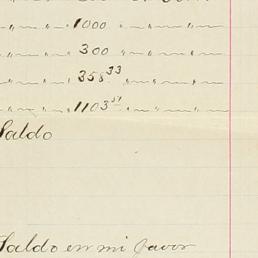 " " " 1000 " " "
" " " 300 " " " "
" " " 358 33 " " "
" " " 1103 51 " " " "
Saldo
Saldo en mi favor